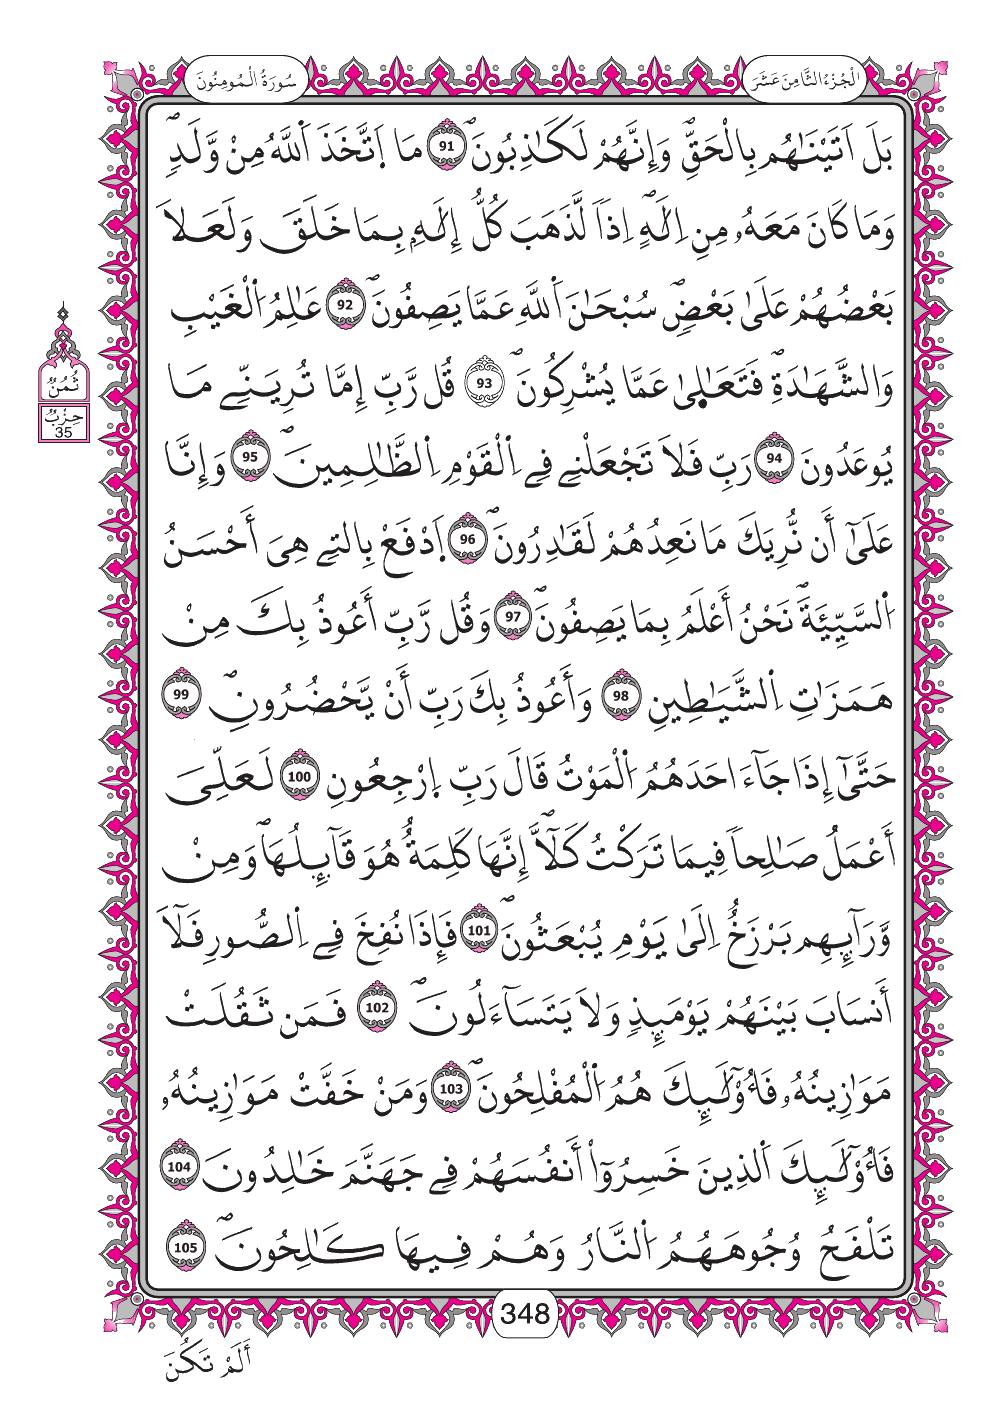 سُورَةُ الْمُومِنُونَ
الْجُزْءُ الثَّامِنَ عَشَرَ
بَلَ اَتَيْنَٰهُم بِالْحَقِّۖ وَإِنَّهُمْ لَكَٰذِبُونَۖ 91 مَا اَ۪تَّخَذَ اَ۬للَّهُ مِنْ وَّلَدٖۖ
وَمَا كَانَ مَعَهُۥ مِنِ اِلَٰهٍۖ اِذاٗ لَّذَهَبَ كُلُّ إِلَٰهِۢ بِمَا خَلَقَ وَلَعَلَا
بَعْضُهُمْ عَلَىٰ بَعْضٖۖ سُبْحَٰنَ اَ۬للَّهِ عَمَّا يَصِفُونَۖ 92 عَٰلِمُ اُ۬لْغَيْبِ
وَالشَّهَٰدَةِۖ فَتَعَٰل۪ىٰ عَمَّا يُشْرِكُونَۖ 93 قُل رَّبِّ إِمَّا تُرِيَنِّے مَا
يُوعَدُونَ 94 رَبِّ فَلَا تَجْعَلْنِے فِے اِ۬لْقَوْمِ اِ۬لظَّٰلِمِينَۖ 95 وَإِنَّا
عَلَىٰٓ أَن نُّرِيَكَ مَا نَعِدُهُمْ لَقَٰدِرُونَۖ 96 اَ۪دْفَعْ بِالتِے هِيَ أَحْسَنُ
اُ۬لسَّيِّئَةَۖ نَحْنُ أَعْلَمُ بِمَا يَصِفُونَۖ 97 وَقُل رَّبِّ أَعُوذُ بِكَ مِنْ
هَمَزَٰتِ اِ۬لشَّيَٰطِينِ 98 وَأَعُوذُ بِكَ رَبِّ أَنْ يَّحْضُرُونِۖ 99
حَتَّىٰٓ إِذَا جَآءَ احَدَهُمُ اُ۬لْمَوْتُ قَالَ رَبِّ اِ۪رْجِعُونِ 100 لَعَلِّىَ
أَعْمَلُ صَٰلِحاٗ فِيمَا تَرَكْتُۖ كَلَّآۖ إِنَّهَا كَلِمَةٌ هُوَ قَآئِلُهَاۖ وَمِنْ
وَّرَآئِهِم بَرْزَخٌ اِلَىٰ يَوْمِ يُبْعَثُونَۖ 101 فَإِذَا نُفِخَ فِے اِ۬لصُّورِ فَلَآ
أَنسَابَ بَيْنَهُمْ يَوْمَئِذٖ وَلَا يَتَسَآءَلُونَۖ 102 فَمَن ثَقُلَتْ
مَوَٰزِينُهُۥ فَأُوْلَٰٓئِكَ هُمُ اُ۬لْمُفْلِحُونَۖ 103 وَمَنْ خَفَّتْ مَوَٰزِينُهُۥ
فَأُوْلَٰٓئِكَ اَ۬لذِينَ خَسِرُوٓاْ أَنفُسَهُمْ فِے جَهَنَّمَ خَٰلِدُونَ 104
تَلْفَحُ وُجُوهَهُمُ اُ۬لنَّارُ وَهُمْ فِيهَا كَٰلِحُونَۖ 105
ثُمُنٌ
حِزْبٌ
35
348
أَلَمْ تَكُنَ